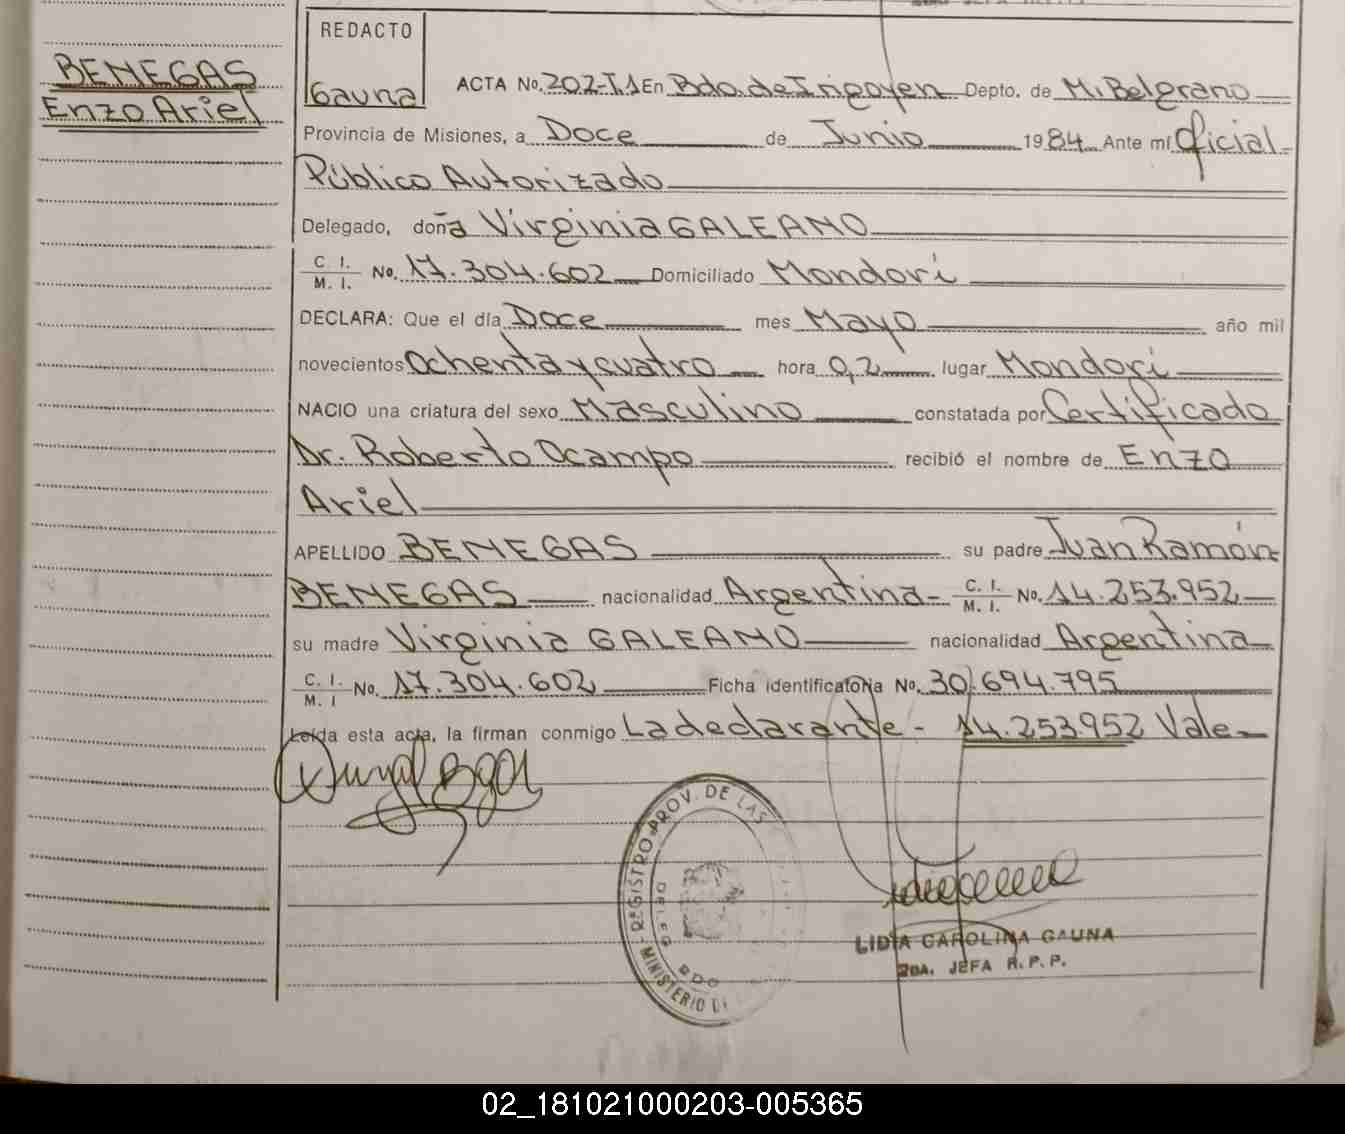 BENEGAS
Enzo Ariel
REDACTO
Gauna
ACTA No. 202-T.1 En Bdo. de Irigoyen Depto. de M. Belgrano
Provincia de Misiones, a Doce de Junio 1984 Ante mí Oficial
Público Autorizado
Delegado, doña Virginia GALEANO
C. I.
M. I. No. 17.304.602 Domiciliado Mondorí
DECLARA: Que el día Doce mes Mayo año mil
novecientos Ochenta y cuatro hora 0,2 lugar Mondori
NACIO una criatura del sexo Masculino constatada por Certificado
Dr. Roberto Ocampo recibió el nombre de Enzo
Ariel
APELLIDO BENEGAS su padre Juan Ramón
BENEGAS nacionalidad Argentina C. I. M. I. No. 14.253.952
su madre Virginia GALEANO nacionalidad Argentina
C. I.
M. I No. 17.304.602 Ficha identificatoria No. 30.694.795
Leída esta acta, la firman conmigo La declarante - 14.253.952 Vale
REGISTRO PROV. DE LAS
DELEG
BDO
MINISTERIO DE
LIDIA CAROLINA GAUNA
2DA. JEFA R.P.P.
02_181021000203-005365